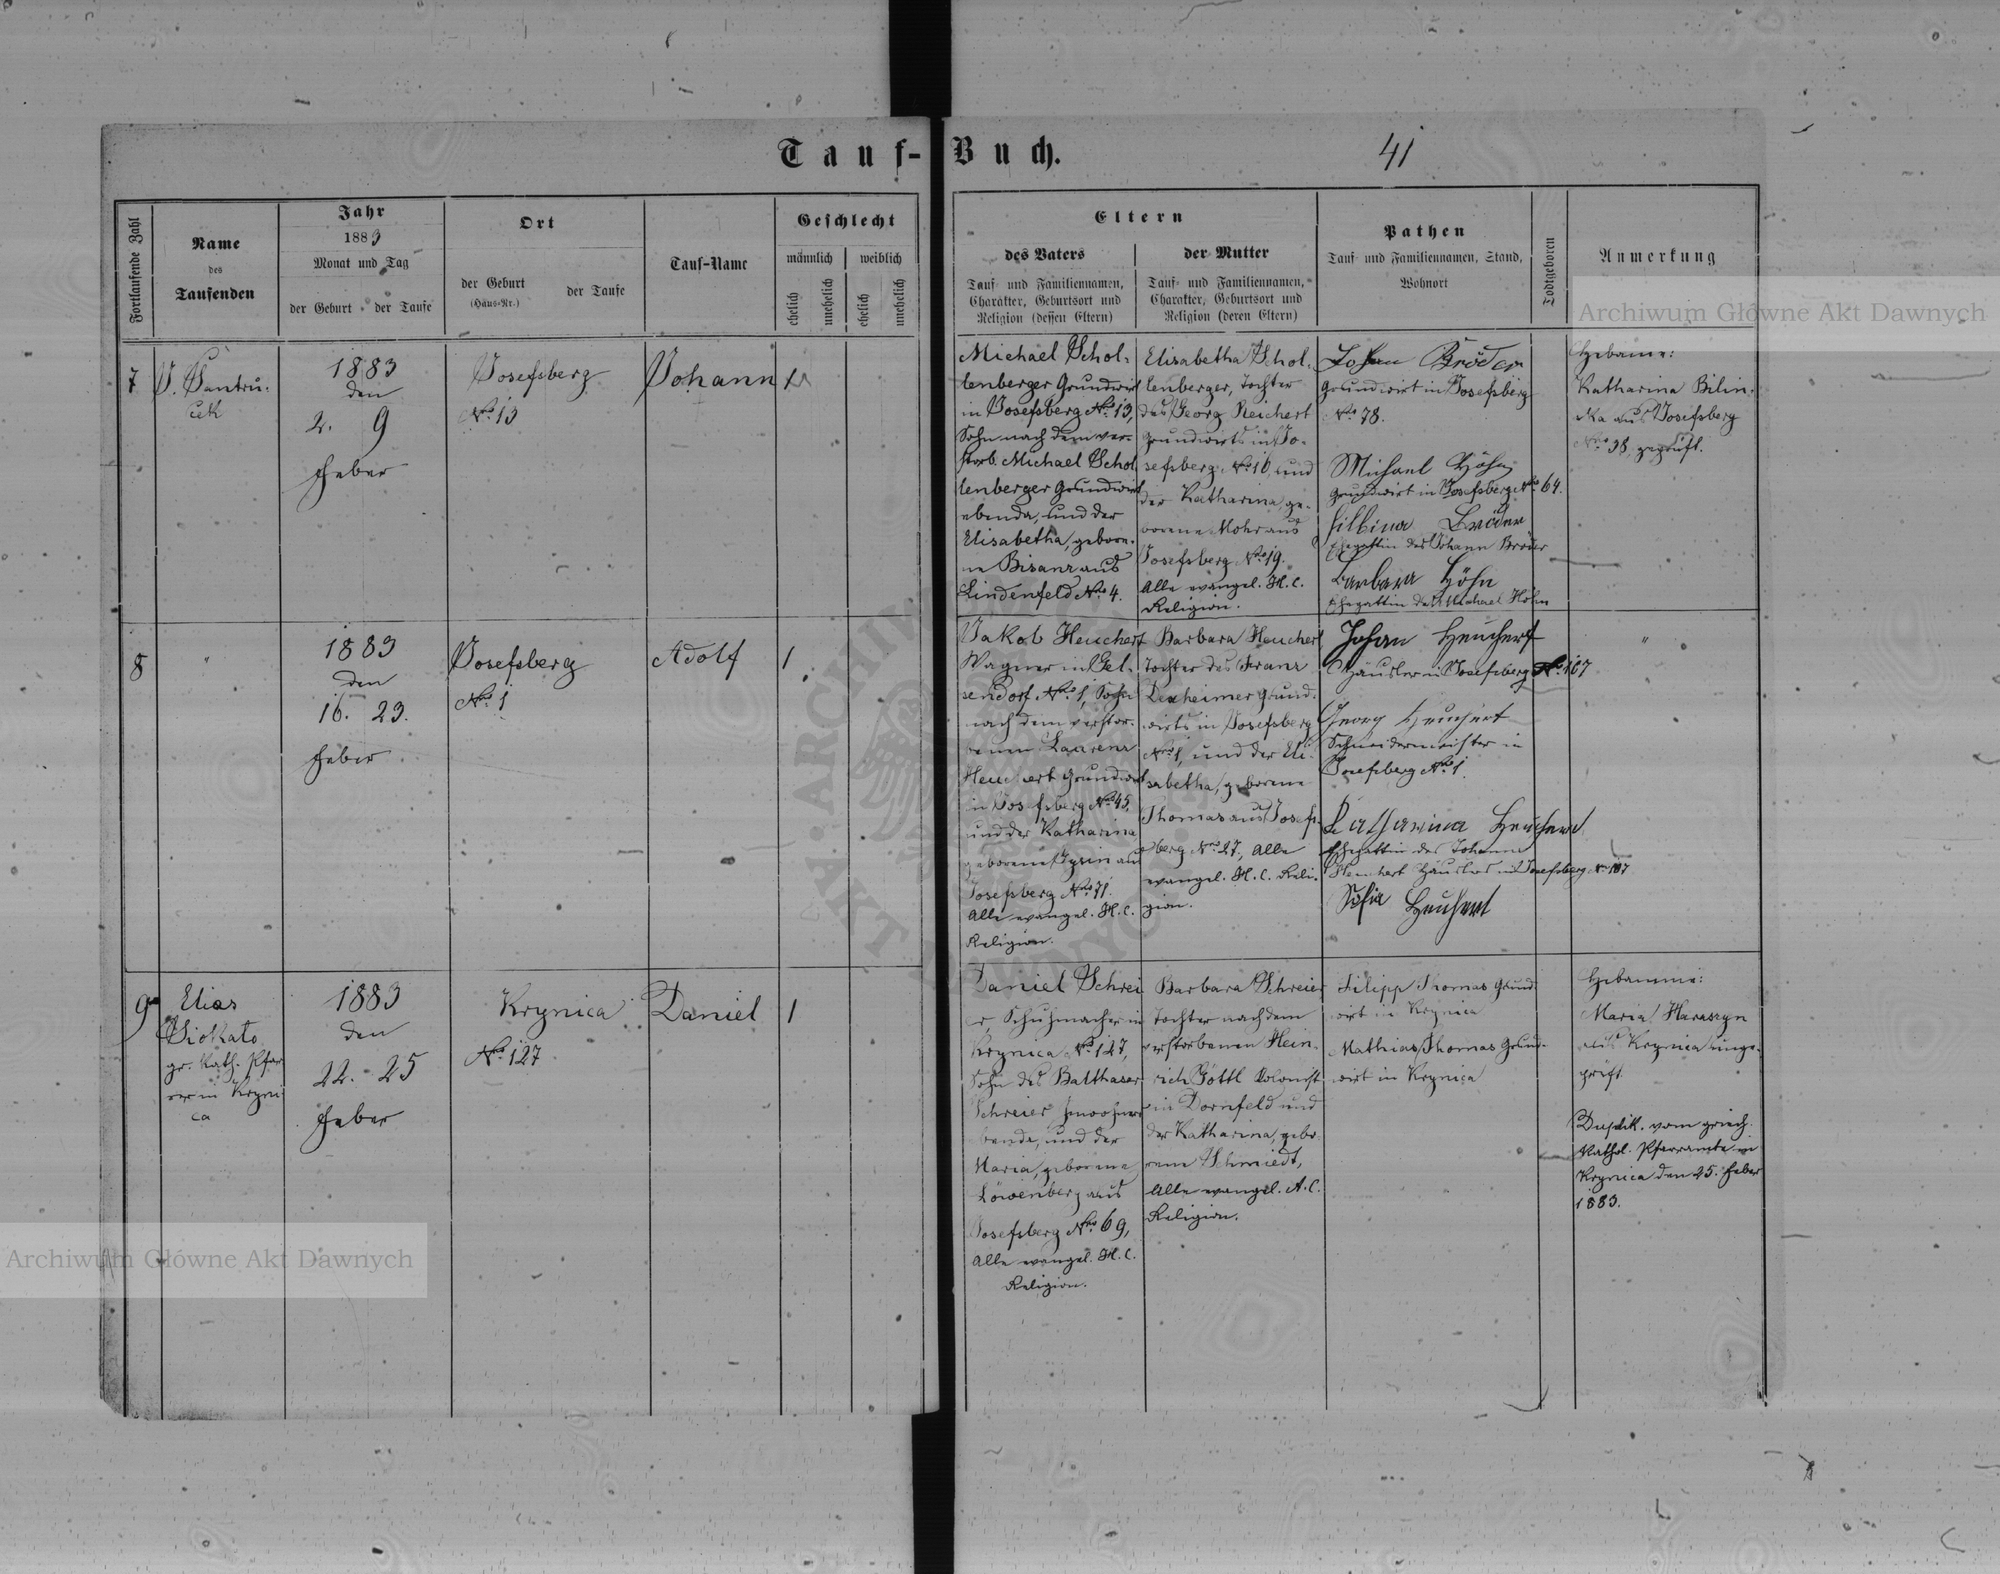 Tauf-Buch.
41
Fortlaufende Zahl
Name
des
Taufenden
Jahr
1883
Monat und Tag
der Geburt der Taufe
Ort
der Geburt
(Haus-Nr.)
der Taufe
Tauf-Name
Geschlecht
männlich
weiblich
ehelich
unehelich
ehelich
unehelich
Eltern
des Vaters
Tauf- und Familiennamen,
Charakter, Geburtsort und
Religion (dessen Eltern)
der Mutter
Tauf- und Familiennamen,
Charakter, Geburtsort und
Religion (deren Eltern)
Pathen
Tauf- und Familiennamen, Stand,
Wohnort
Todtgeboren
Anmerkung
7
1883
den
2. 9
Feber
Josefsberg
No 13
Johann
Michael Schol-
lenberger Grundwirt
in Josefsberg No. 13,
Sohn nach dem ver-
storb. Michael Schol
lenberger Grundwirt
ebenda, und der
Elisabetha, gebore-
ne Bisanz aus
Lindenfeld No. 4.
Elisabetha Schol-
lenberger, Tochter
des Georg Reichert
Grundwirts in Jo-
sefsberg No. 16, und
der Katharina, ge-
borene Mohr aus
Josefsberg No 19.
Alle evangel. H. C.
Religion.
Johan Bröder
Grundwirt in Josefsberg
No 78.
Michael Höhn
Grundwirt in Josefsberg No 64.
Bröder
Ehegattin des Johann Bröder
Barbara Höhn
Ehegattin des Michael Höhn
Hebame:
Katharina Bilin-
ska aus Josefsberg
No 38, geprüft.
8
"
1883
den
16. 23.
Feber
Josefsberg
No. 1
Adolf
1
Jakob Heuchert
Wagner in Gel-
sendorf No. 1, Sohn
nach dem verstor-
benen Laurenz
Heuchert Grundwirt
in Josefsberg No 45.
und der Katharina
geborene aus
Josefsberg No 71.
Alle evangel. H. C.
Religion.
Barbara Heuchert
Tochter des Franz
Dexheimer Grund-
wirts in Josefsberg
No 1, und der Eli-
sabetha, geborene
Thomas aus Josefs-
berg No 27, Alle
evangel. H. C. Reli-
gion.
Johan Heuchert
Häusler in Josefsberg No. 107
Georg Heuchert
Schneidermeister in
Josefsberg No 1.
Katharina Heuchert
Ehegattin des Johann
Heuchert Häusler in Josefsberg No 107
Sofia Heuchert
"
9
Elias
gr. Kath. Pfar-
rer in Kryni-
ca
1883
den
22. 25
Feber
Krynica
No. 127
Daniel
1
Daniel Schrei
er, Schuhmacher in
Krynica No. 127,
Sohn des Balthaser
Schreier Inwohners
ebenda, und der
Maria, geborene
Löwenberg aus
Josefsberg No. 69,
Alle evangel. H. C.
Religion.
Barbara Schreier
Tochter nach dem
verstorbenen Hein-
rich Göttl Kolonist
in Dornfeld und
der Katharina, gebo-
rene Schmiedt,
Alle evangel. A. C.
Religion.
Filipp Thomas Grund-
wirt in Krynica
Mathias Thomas Grund-
wirt in Krynica
Hebamme:
Maria Haraszyn
aus Krynica unge-
prüft.
Duplik. vom griech.
Kathol. Pfarramte in
Krynica den 25. Feber
1883.
Archiwum Główne Akt Dawnych
Archiwum Główne Akt Dawnych